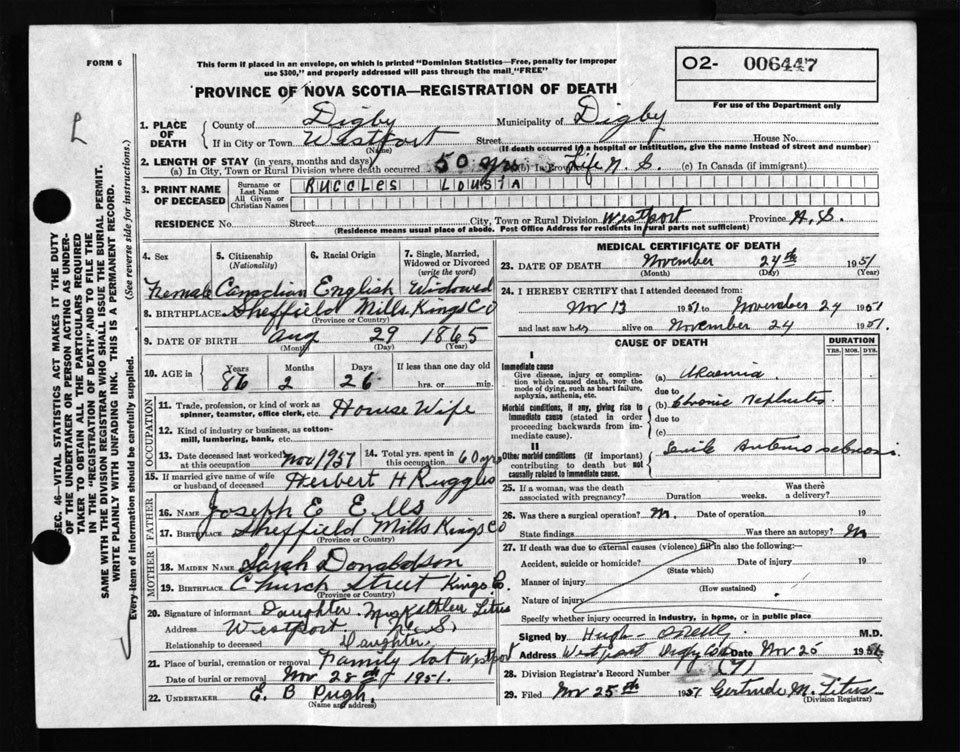 FORM 6
This form if placed in an envelope, on which is printed "Dominion Statistics—Free, penalty for improper
use $300," and properly addressed will pass through the mail "FREE"
O2- 006447
For use of the Department only
PROVINCE OF NOVA SCOTIA—REGISTRATION OF DEATH
L
1. PLACE OF DEATH
County of Digby Municipality of Digby
If in City or Town Westport Street House No.
(Name) (If death occurred in a hospital or institution, give the name instead of street and number)
2. LENGTH OF STAY (in years, months and days)
(a) In City, Town or Rural Division where death occurred 50 yrs (b) In Province Life N. S. (c) In Canada (if immigrant)
3. PRINT NAME OF DECEASED
Surname or Last Name
All Given or Christian Names
RUGGLES LOUSIA
RESIDENCE No. Street City, Town or Rural Division Westport Province N. S.
(Residence means usual place of abode. Post Office Address for residents in rural parts not sufficient)
4. Sex 5. Citizenship (Nationality) 6. Racial Origin 7. Single, Married, Widowed or Divorced (write the word)
Female Canadian English Widowed
8. BIRTHPLACE Sheffield Mills Kings Co
(Province or Country)
9. DATE OF BIRTH Aug 29 1865
(Month) (Day) (Year)
10. AGE in Years Months Days If less than one day old
86 2 26 hrs. or min.
OCCUPATION
11. Trade, profession, or kind of work as spinner, teamster, office clerk, etc. House Wife
12. Kind of industry or business, as cotton-mill, lumbering, bank, etc.
13. Date deceased last worked at this occupation Nov 1951 14. Total yrs. spent in this occupation 60 yrs
15. If married give name of wife or husband of deceased Herbert H Ruggles
FATHER
16. Name Joseph E Ells
17. Birthplace Sheffield Mills Kings Co
(Province or Country)
MOTHER
18. MAIDEN NAME Sarah Donaldson
19. BIRTHPLACE Church Street Kings Co.
(Province or Country)
20. Signature of informant Daughter Mrs Kathleen Titus
Address Westport N. S.
Relationship to deceased Daughter
21. Place of burial, cremation or removal Family lot Westport
Date of burial or removal Nov 28th 1951.
22. UNDERTAKER E. B Pugh.
(Name and address)
MEDICAL CERTIFICATE OF DEATH
23. DATE OF DEATH November 24th 1951
(Month) (Day) (Year)
24. I HEREBY CERTIFY that I attended deceased from:
Nov 13 1951 to November 24 1951
and last saw her alive on November 24 1951.
CAUSE OF DEATH
DURATION
YRS. MOS. DYS.
I
Immediate cause
Give disease, injury or complication which caused death, not the mode of dying, such as heart failure, asphyxia, asthenia, etc.
(a) Uraemia.
due to
Morbid conditions, if any, giving rise to immediate cause (stated in order proceeding backwards from immediate cause).
(b) Chronic Nephritis
due to
(c)
II
Other morbid conditions (if important) contributing to death but not causally related to immediate cause.
Senile
25. If a woman, was the death associated with pregnancy? Duration weeks. Was there a delivery?
26. Was there a surgical operation? Date of operation 19
State findings Was there an autopsy?
27. If death was due to external causes (violence) fill in also the following:—
Accident, suicide or homicide? Date of injury 19
(State which)
Manner of injury
(How sustained)
Nature of injury
Specify whether injury occurred in industry, in home, or in public place
Signed by Hugh M.D.
Address Westport Digby Co Date Nov 25 1951
28. Division Registrar's Record Number (4)
29. Filed Nov 25th 1951 Gertrude M. Titus
(Division Registrar)
SEC. 46—VITAL STATISTICS ACT MAKES IT THE DUTY
OF THE UNDERTAKER OR PERSON ACTING AS UNDER-
TAKER TO OBTAIN ALL THE PARTICULARS REQUIRED
IN THE "REGISTRATION OF DEATH" AND TO FILE THE
SAME WITH THE DIVISION REGISTRAR WHO SHALL ISSUE THE BURIAL PERMIT.
WRITE PLAINLY WITH UNFADING INK. THIS IS A PERMANENT RECORD.
Every item of information should be carefully supplied. (See reverse side for instructions.)